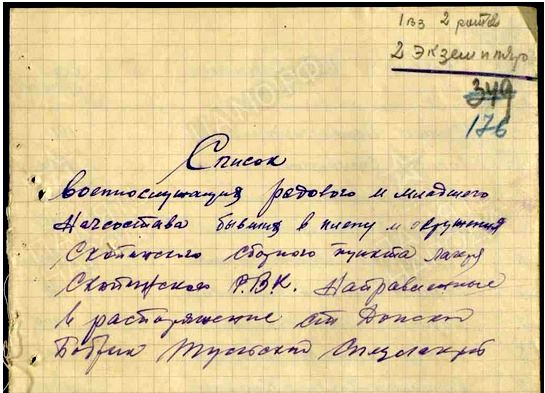 1 вз 2 рота
2 Экземпляр
349
176
Список
военнослужащих рядового и младшего
Начсостава бывших в плену и окружения
Скопинского сборного пункта лагеря
Скопинского Р.В.К. Направленные
в распоряжение ст Донской
Бобрик Тульской Спецлагерь